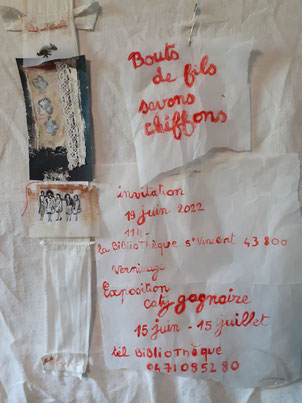 Bouts
de fils
savons
chiffons
invitation
19 juin 2022
11H -
La BiBlioThèque St Vincent 43 800
Vernissage
Exposition
Caty gagnaire
15 juin - 15 juillet
tél BiBlioThèque
04 71 08 52 80